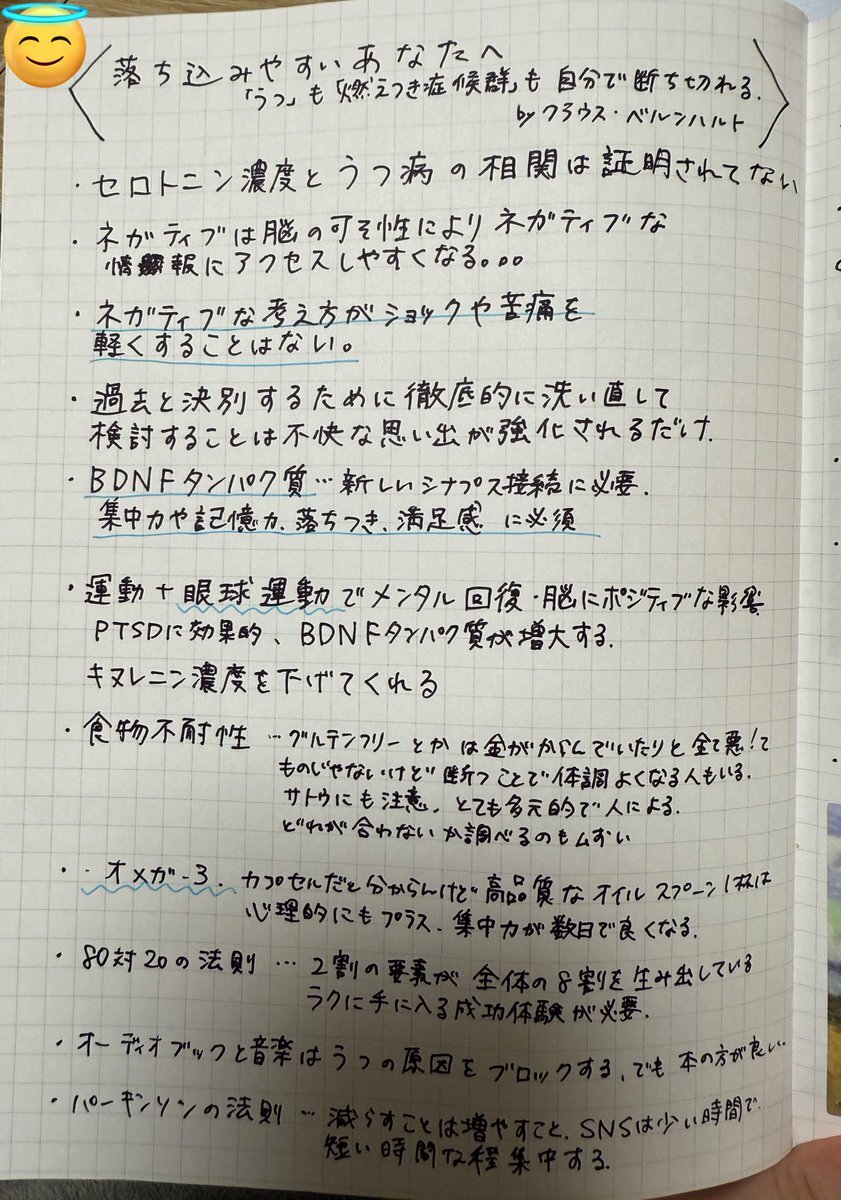 落ち込みやすいあなたへ
「うつ」も「燃えつき症候群」も自分で断ち切れる.
by クラウス・ベルンハルト
・セロトニン濃度とうつ病の相関は証明されてない
・ネガティブは脳の可そ性によりネガティブな
情報にアクセスしやすくなる。。。
・ネガティブな考え方がショックや苦痛を
軽くすることはない。
・過去と決別するために徹底的に洗い直して
検討することは不快な思い出が強化されるだけ.
・BDNFタンパク質…新しいシナプス接続に必要.
集中力や記憶力、落ちつき、満足感 に必須
・運動+眼球運動でメンタル回復・脳にポジティブな影響
PTSDに効果的、BDNFタンパク質が増大する.
キヌレニン濃度を下げてくれる
・食物不耐性 …グルテンフリーとかは金がからんでいたりと全て悪!て
ものじゃないけど断つことで体調よくなる人もいる.
サトウにも注意. とても多元的で人による.
どれが合わないか調べるのもムずい
・・オメガ-3. カプセルだと分からんけど高品質なオイルスプーン1杯は
心理的にもプラス. 集中力が数日で良くなる.
・80対20の法則 … 2割の要素が全体の8割を生み出している
ラクに手に入る成功体験が必要.
・オーディオブックと音楽はうつの原因をブロックする、でも本の方が良い.
・パーキンソンの法則 … 減らすことは増やすこと. SNSは少い時間で.
短い時間な程集中する.